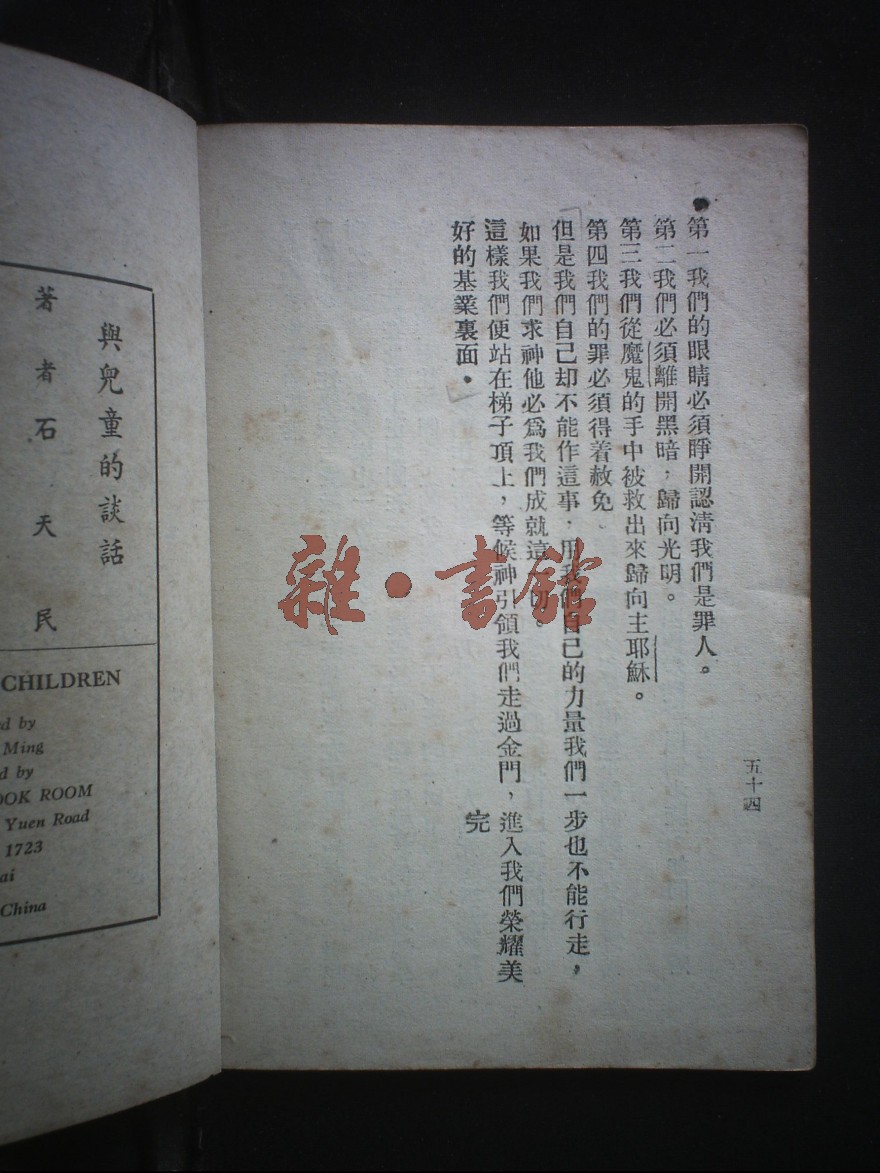 五十四
第一我們的眼睛必須睜開認清我們是罪人。
第二我們必須離開黑暗，歸向光明。
第三我們從魔鬼的手中被救出來歸向主耶穌。
第四我們的罪必須得着赦免
但是我們自己却不能作這事，用我們自己的力量我們一步也不能行走，
如果我們求神他必爲我們成就這一切。
這樣我們便站在梯子頂上，等候神引領我們走過金門，進入我們榮耀美
好的基業裏面。
完
雜·書館
與兒童的談話
著者石天民
CHILDREN
d by
Ming
d by
OOK ROOM
Yuen Road
1723
ai
China